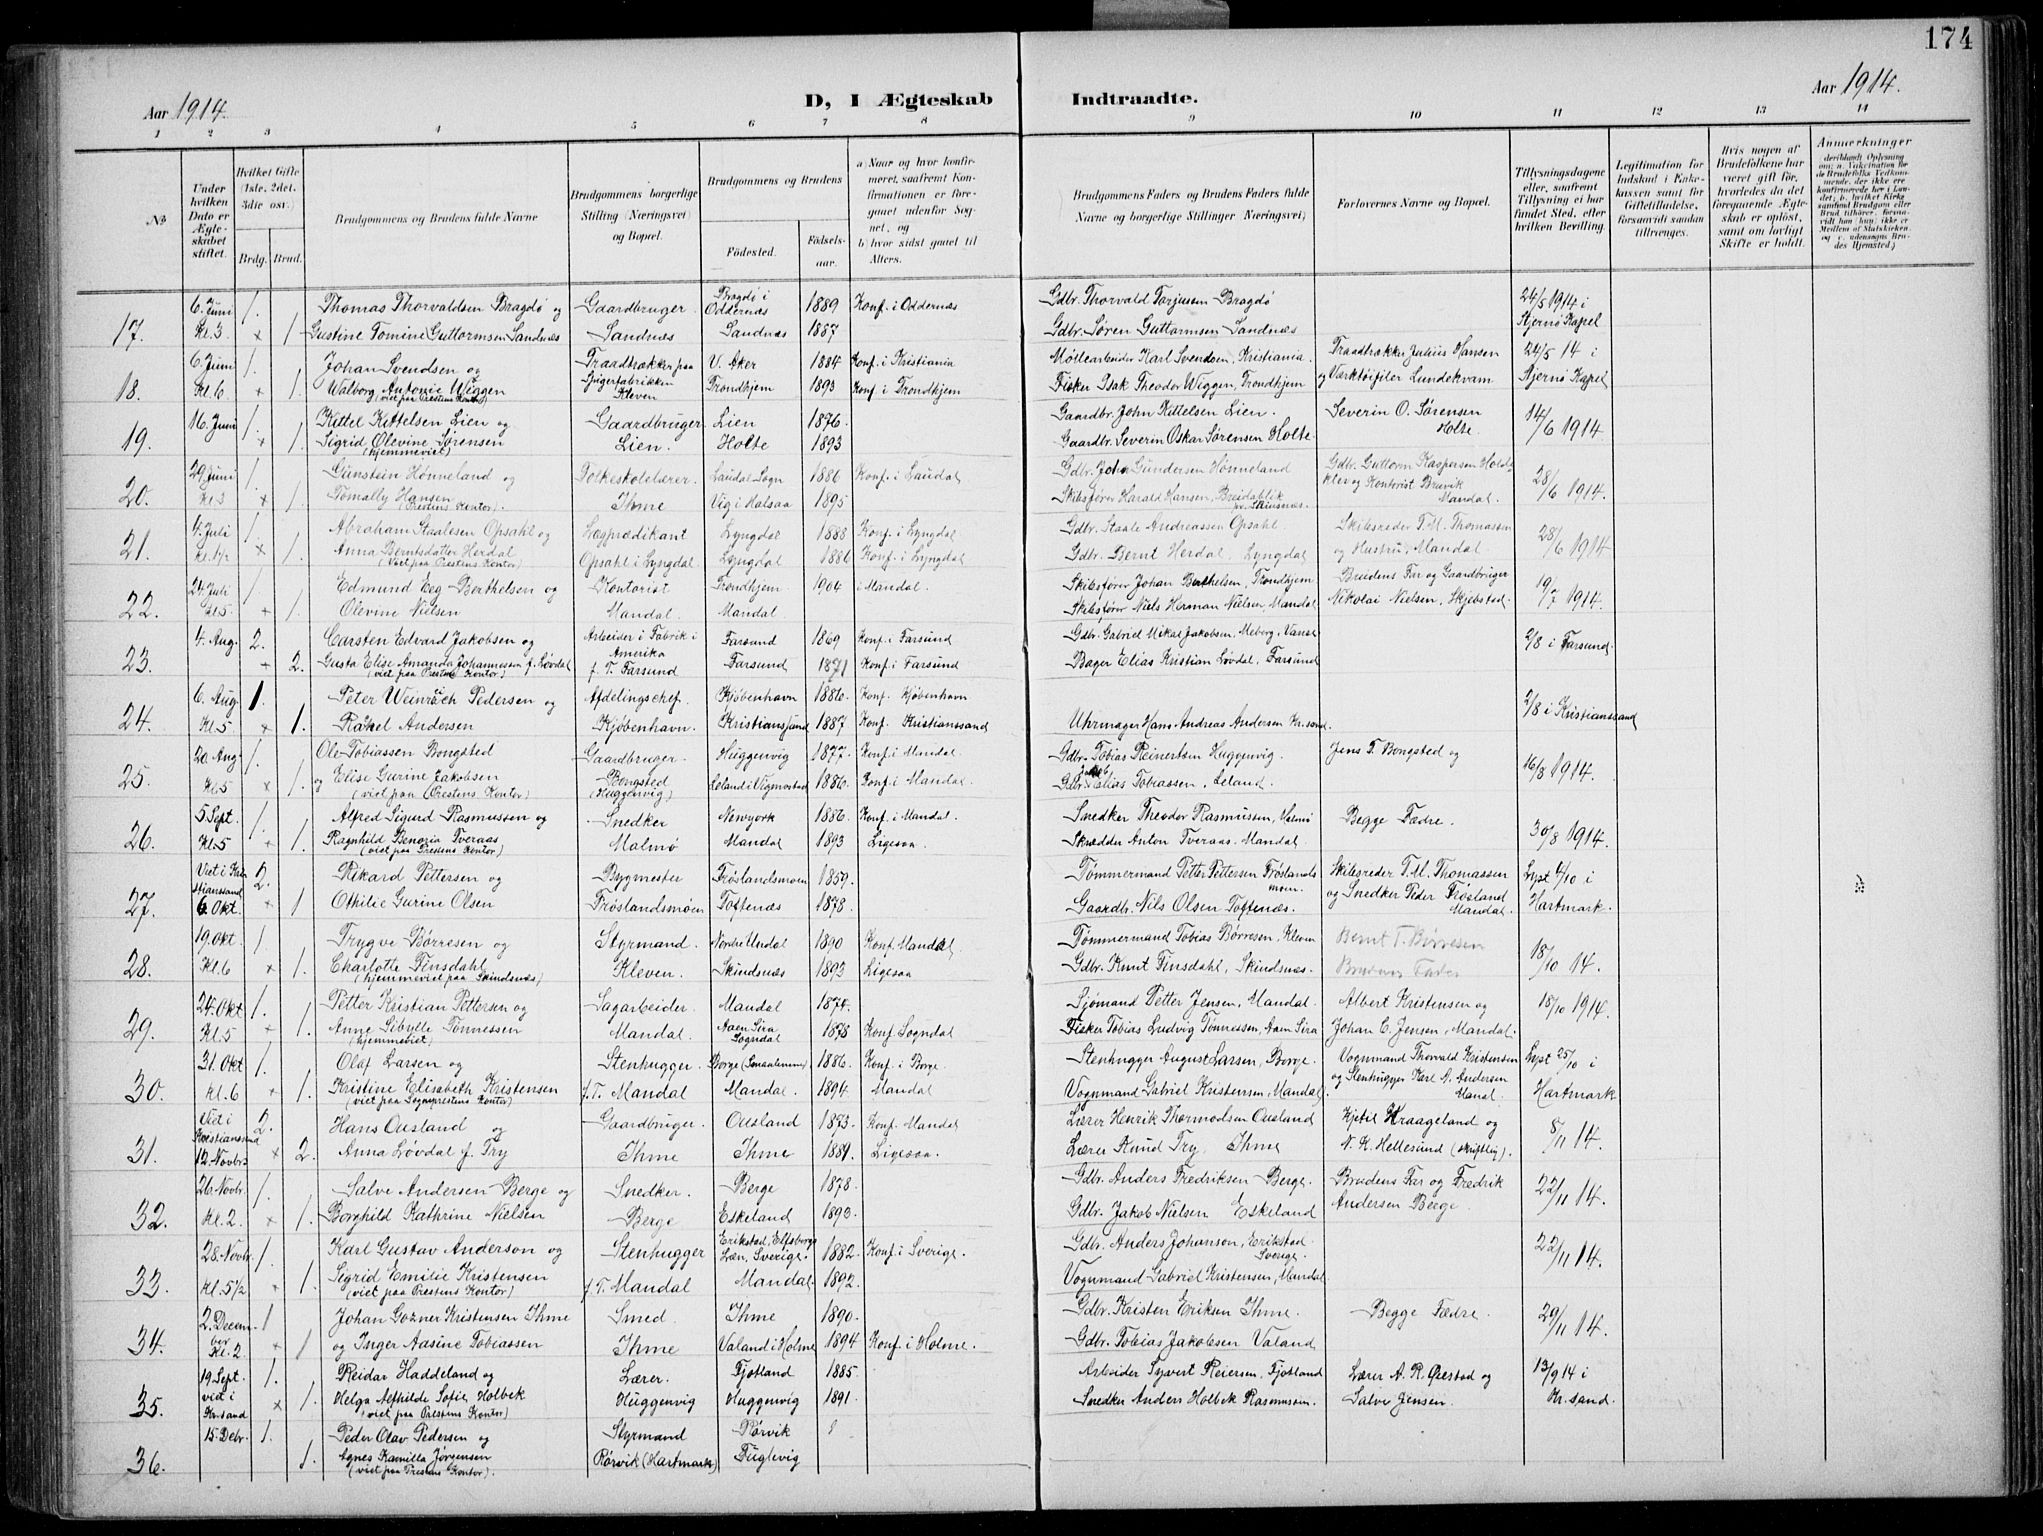 174
Aar 1914.
D, I Ægteskab Indtraadte.
Aar 1914.
1 2 3 4 5 6 7 8 9 10 11 12 13 14
No
Under hvilken Dato er Ægteskabet stiftet.
Hvilket Gifte (1ste, 2det, 3die osv.)
Brdg. Brud.
Brudgommens og Brudens fulde Navne
Brudgommens borgerlige Stilling (Næringsvei) og Bopæl.
Brudgommens og Brudens
Fødested.
Fødselsaar.
a) Naar og hvor konfirmeret, saafremt Konfirmationen er foregaaet udenfor Sognet, og
b) hvor sidst gaaet til Alters.
Brudgommens Faders og Brudens Faders fulde Navne og borgerlige Stillinger Næringsvei)
Forlovernes Navne og Bopæl.
Tillysningsdagene eller, saafremt Tillysning ei har fundet Sted, efter hvilken Bevilling.
Legitimation for Indskud i Enkekassen samt for Giftetilladelse, forsaavidt saadan tiltrænges.
Hvis nogen af Brudefolkene har været gift før, hvorledes da det foregaaende Ægteskab er opløst, samt om lovligt Skifte er holdt.
Anmerkninger
17. 6. Juni 1. Thomas Thorvaldsen Bragdø og Gaardbruger. Bragdø i Oddernæs 1889 Konf. i Oddernæs Gdbr. Thorvald Torjusen Bragdø 24/5 1914 i
Kl. 3 × 1 Gustine Tomine Guttormsen Sandnæs Sandnæs Sandnæs 1887 Gdbr. Søren Guttormsen Sandnæs Stjernø Kapel
18. 6. Juni 1. Johan Svendsen og Traadtrækker paa V. Aker 1884 Konf. i Kristiania Møllearbeider Karl Svendsen, Kristiania. Traadtrækker Julius Hansen 24/5 14 i
Kl. 6 × 1. Walborg Antonie Wiggen (viet paa Prestens Kontor) Spigerfabrikken Kleven Trondhjem 1893 Konf. i Trondhjem Fisker Isak Theodor Wiggen, Trondhjem og Værktøifiler Lundekvam Stjernø Kapel
19. 16. Juni 1. Kittel Kittelsen Lien og Gaardbruger. Lien 1876. Gaardbr. John Kittelsen Lien. Severin O. Sørensen Holte. 14/6 1914.
× 1. Sigrid Olevine Sørensen (hjemmeviet) Lien. Holte 1893 Gaardbr. Severin Oskar Sørensen Holte.
20. 29 Juni 1. Gunstein Hønneland og Folkeskolelærer. Laudal Sogn 1886 Konf. i Laudal Gdbr. John Gundersen Hønneland Gdbr. Guttorm Kaspersen 28/6 1914.
Kl. 3 × 1. Tomally Hansen (Prestens Kontor) Ihme Vig i Halsaa 1895 Skibsfører Harald Hansen, Breidablik pr. Skinsnæs. og Kontorist Bruvik Mandal.
21. 4. Juli 1. Abraham Staalesen Opsahl og Lægprædikant Lyngdal 1888 Konf. i Lyngdal Gdbr. Staale Andreassen Opsahl. Skibsreder T. M. Thomassen 28/6 1914
× 1. Anna Berntsdatter Herdal (viet paa Prestens Kontor) Opsahl i Lyngdal. Lyngdal 1886 Konf. i Lyngdal Gdbr. Bernt Herdal, Lyngdal og Hustru, Mandal.
22. 24. Juli 1 Edmund Eeg-Berthelsen og Kontorist Trondhjem 1904 i Mandal. Skibsfører Johan Berthelsen, Trondhjem Brudens Far og Gaardbruger 19/7 1914.
Kl. 5 × 1. Olevine Nielsen Mandal. Mandal Skibsfører Niels Herman Nielsen, Mandal Nikolai Nielsen, Skjebstad.
23. 4. Aug. 2. Carsten Edvard Jakobsen og Arbeider i Fabrik i Amerika Farsund 1869 Konf. i Farsund Gdbr. Gabriel Mikal Jakobsen, Meberg, Vanse 2/8 i Farsund.
× 2. Gusta Elise Amanda Johannesen f. Løvdal (viet paa Prestens Kontor) f. T. Farsund Farsund 1871 Konf. i Farsund Bager Elias Kristian Løvdal, Farsund
24. 6. Aug. 1. Peter Weinreich Pedersen og Afdelingschef. Kjøbenhavn 1886. Konf. Kjøbenhavn 2/8 i Kristianssand
Kl. 5 × 1. Rakel Andersen Kjøbenhavn. Kristianssund 1887 Konf. Kristianssand Uhrmager Hans Andreas Andersen Kr.sand.
25. 20. Aug. 1. Ole Tobiassen Bongsted Gaardbruger. Huggenvig 1877. Konf. i Mandal Gdbr. Tobias Reinertsen Huggenvig Jens T. Bongsted og 16/8 1914.
Kl. 5 × 1. og Elise Gurine Jakobsen (viet paa Prestens Kontor) Bongsted (Huggenvig) Leland i Vigmostad 1886. Konf. i Mandal. Gdbr. Jakob Elias Tobiassen, Leland.
26. 5 Sept. 1. Alfred Sigurd Rasmussen og Snedker Newyork 1886. Konf. i Mandal. Snedker Theodor Rasmussen, Malmø Begge Fædre. 30/8 1914.
Kl. 5 × 1. Ragnhild Benoria Tveraas (viet paa Prestens Kontor) Malmø Mandal 1893 Ligesaa. Skrædder Anton Tveraas, Mandal.
27. Viet i Kristianssand 2. Rikard Pettersen og Bygmester Frøslandsmoen 1859. Tømmermand Petter Pettersen Frøslandsmoen. Skibsreder T. M. Thomassen Lyst 4/10 i
6. Okt. × 1 Othilie Gurine Olsen Frøslandsmoen Toftenæs 1878 Gaardbr. Nils Olsen Toftenæs. og Snedker Peder Frøsland Mandal. Hartmark.
28. 19. Okt. 1. Trygve Børresen og Styrmand. Nordre Undal 1890 Konf. Mandal. Tømmermand Tobias Børresen, Kleven Bernt T. Børresen 18/10 14.
Kl. 6 × 1. Charlotte Finsdahl (hjemmeviet paa Skindsnæs) Kleven. Skindsnæs 1893 Ligesaa Gdbr. Knut Finsdahl, Skindsnæs. Brudens Fader
29. 24. Okt 1. Petter Kristian Pettersen og Sagarbeider. Mandal 1874. Sjømand Petter Jensen, Mandal. Albert Kristensen og 18/10 1914.
Kl. 5 × 1. Anne Sibylle Tønnessen (hjemmeviet) Mandal. Aaen Sira Sogndal 1878 Konf. Sogndal Fisker Tobias Ludvig Tønnessen, Aaen Sira Johan C. Jensen, Mandal.
30. 31. Okt 1. Olaf Larsen og Stenhugger. Borge (Smaalenene) 1886. Konf. i Borge Stenhugger August Larsen, Borge. Vognmand Thorvald Kristensen Lyst 25/10 i
Kl. 6 × 1. Kristine Elisabeth Kristensen (viet paa Sogneprestens Kontor) f. T. Mandal Mandal. 1894. Mandal Vognmand Gabriel Kristensen, Mandal. og Stenhugger Karl G. Andersen Mandal Hartmark
31. Viet i Kristianssand 2. Hans Ousland og Gaardbruger. Ousland 1873. Konf. Mandal Lærer Henrik Thormodsen Ousland Kjetil Kraageland og 8/11 14.
12. Novbr. × 2. Anna Løvdal f. Try Ihme Ihme 1889. Ligesaa. Lærer Aanund Try, Ihme N. K. Hellesund (skriftlig).
32. 26. Novbr. 1. Salve Andersen Berge og Snedker. Berge 1878. Gdbr. Anders Fredriksen Berge. Brudens Far og Fredrik 22/11 14.
Kl. 2. × 1. Borghild Kathrine Nielsen Berge Eskeland 1893. Gdbr. Jakob Nielsen Eskeland Andersen Berge.
33. 28. Novbr. 1. Karl Gustav Anderson og Stenhugger Erikstad, Elfsborgs Læn, Sverige. 1882. Konf. i Sverige. Gdbr. Anders Johanson, Erikstad Sverige. 22/11 14.
Kl. 5 1/2 × 1. Sigrid Emilie Kristensen (viet paa Prestens Kontor) f. T. Mandal Mandal. 1892. Vognmand Gabriel Kristensen, Mandal
34. 2. December 1 Johan Gozner Kristensen Ihme Smed. Ihme 1890. Gdbr. Kristen Eriksen Ihme. Begge Fædre. 29/11 14.
Kl. 2 × 1 og Inger Aasine Tobiassen Ihme Valand i Holme 1894 Konf. i Holme. Gdbr. Tobias Jakobsen Valand
35. 19. Sept. 1. Reidar Haddeland og Lærer. Fjotland 1885 Arbeider Syvert Reiersen, Fjotland Lærer A. R. Ørestad og 13/9 14 i
viet i Kr.sand × 1. Helga Alfhilde Sofie Holbek (viet paa Prestens Kontor) Huggenvig Huggenvig 1891. Snedker Anders Holbek Rasmussen. Salve Jensen. Kr.sand.
36. 15. Debr. 1. Peder Olav Pedersen og Styrmand Rørvik
1. Agnes Kamilla Jørgensen (viet paa Prestens Kontor). Rørvik (Hartmark) Fuglevig